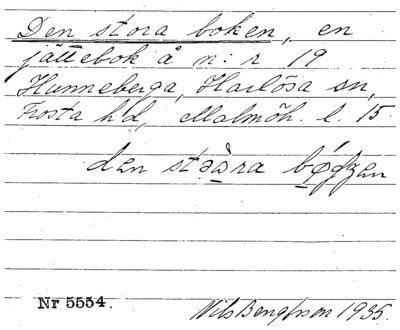 Den stora boken, en
jättebok å n:r 19
Hunneberga, Harlösa sn,
Frosta hd, Malmöh. l. 15.
den
Nr 5554.
Nils Bengtsson 1935.